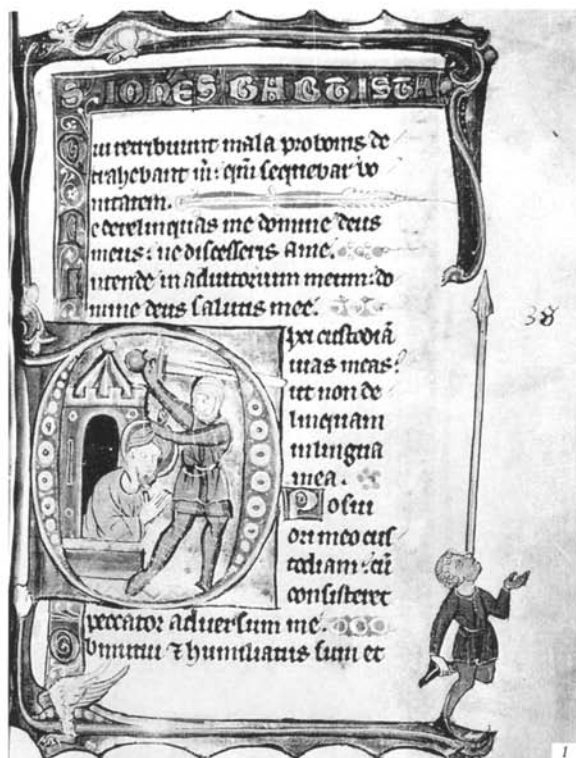 S. IOHES BABTISTA
Qui retribuunt mala pro bonis de
trahebant m̄: qm̄ sequebar bo
nitatem.
Ne derelinquas me domine deus
meus: ne discesseris a me.
Intende in adiutorium meum: do
mine deus salutis mee.
Dixi custodiā
uias meas:
ut non de
linquam
in lingua
mea.
Posui
ori meo cus
todiam: cū
consisteret
peccator aduersum me.
Obmutui ⁊ humiliatus sum et
38
1